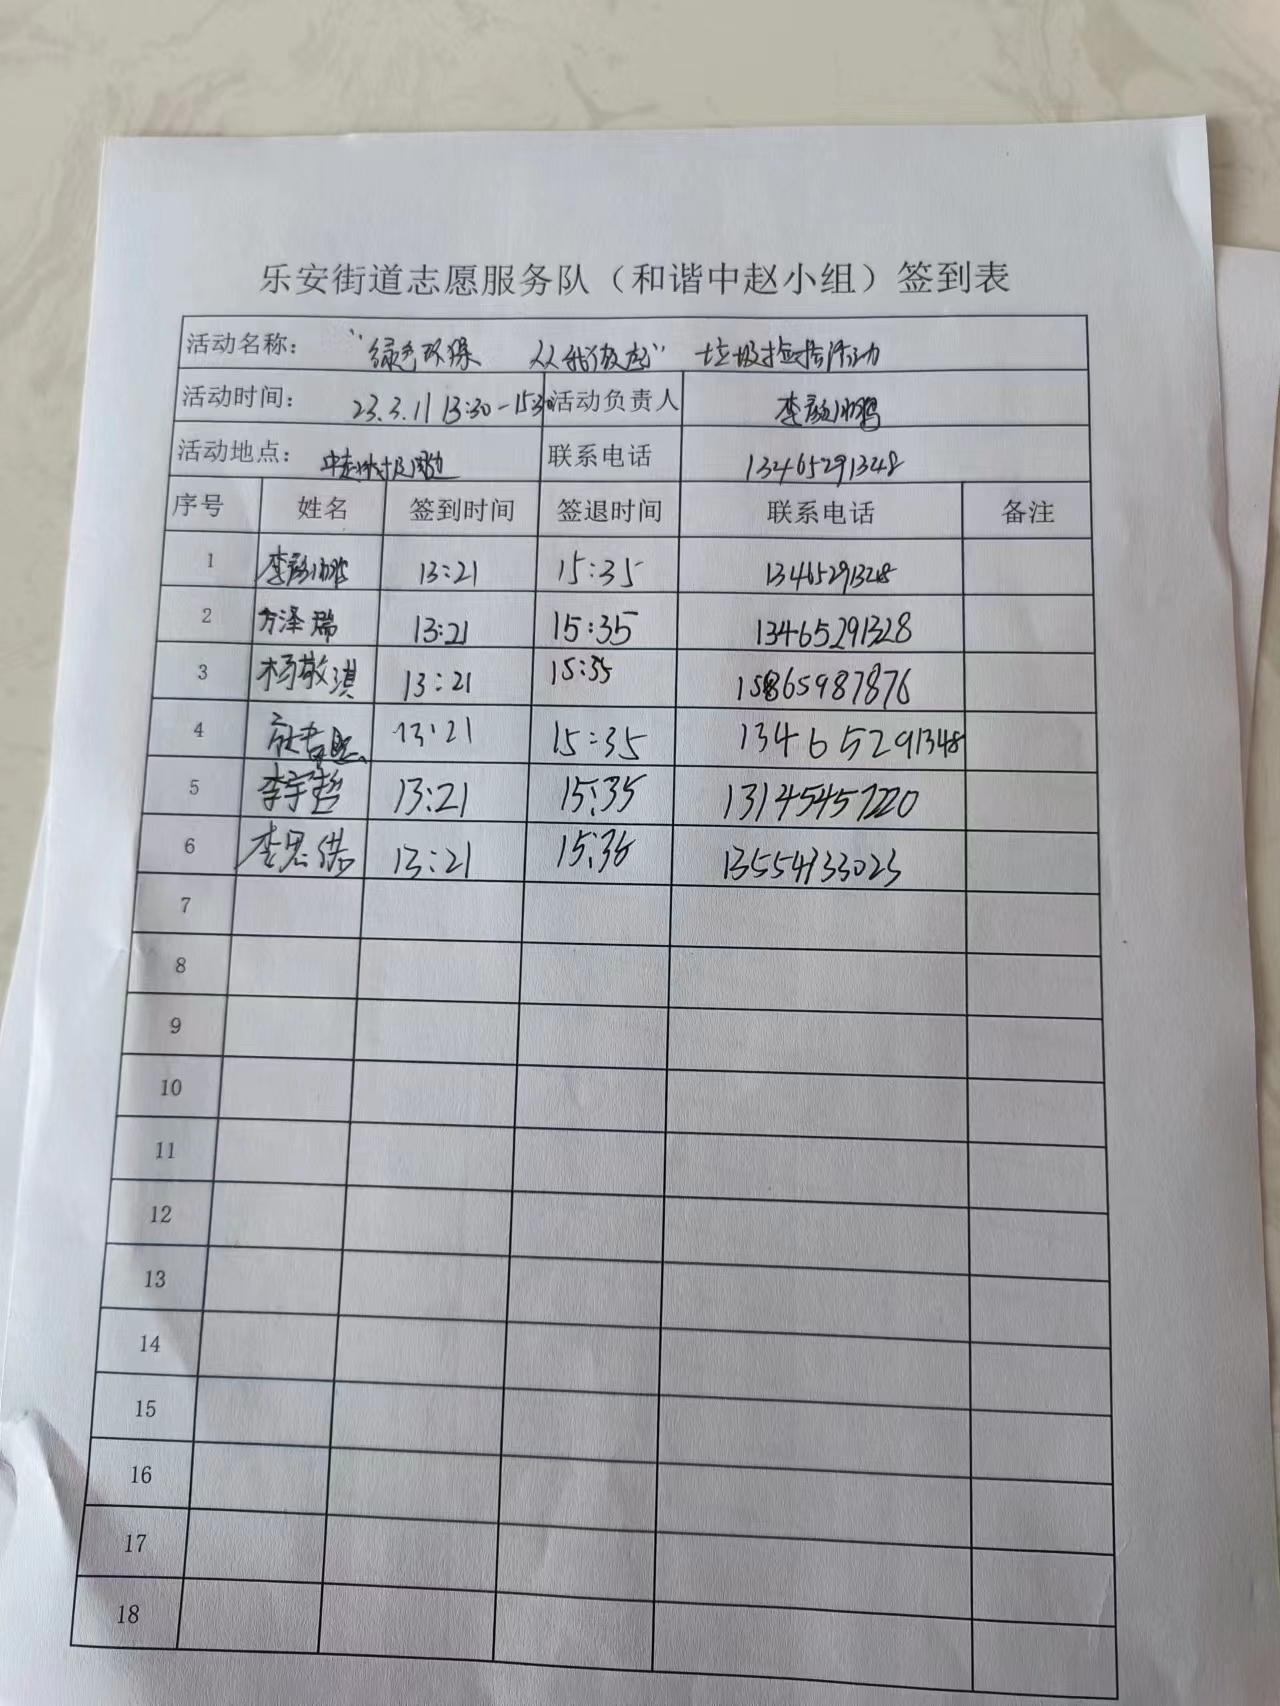 乐安街道志愿服务队（和谐中赵小组）签到表
活动名称： “绿色环保 从我做起” 垃圾捡拾活动
活动时间： 23.3.11 13:30-15:30 活动负责人 李
活动地点： 中赵 周边 联系电话 13465291348
序号 姓名 签到时间 签退时间 联系电话 备注
1 李 13:21 15:35 13465291328
2 方泽瑞 13:21 15:35 13465291328
3 杨敬淇 13:21 15:35 15865987876
4 13:21 15:35 13465291348
5 李宇哲 13:21 15:35 13145457220
6 李思 13:21 15:36 13554133023
7
8
9
10
11
12
13
14
15
16
17
18